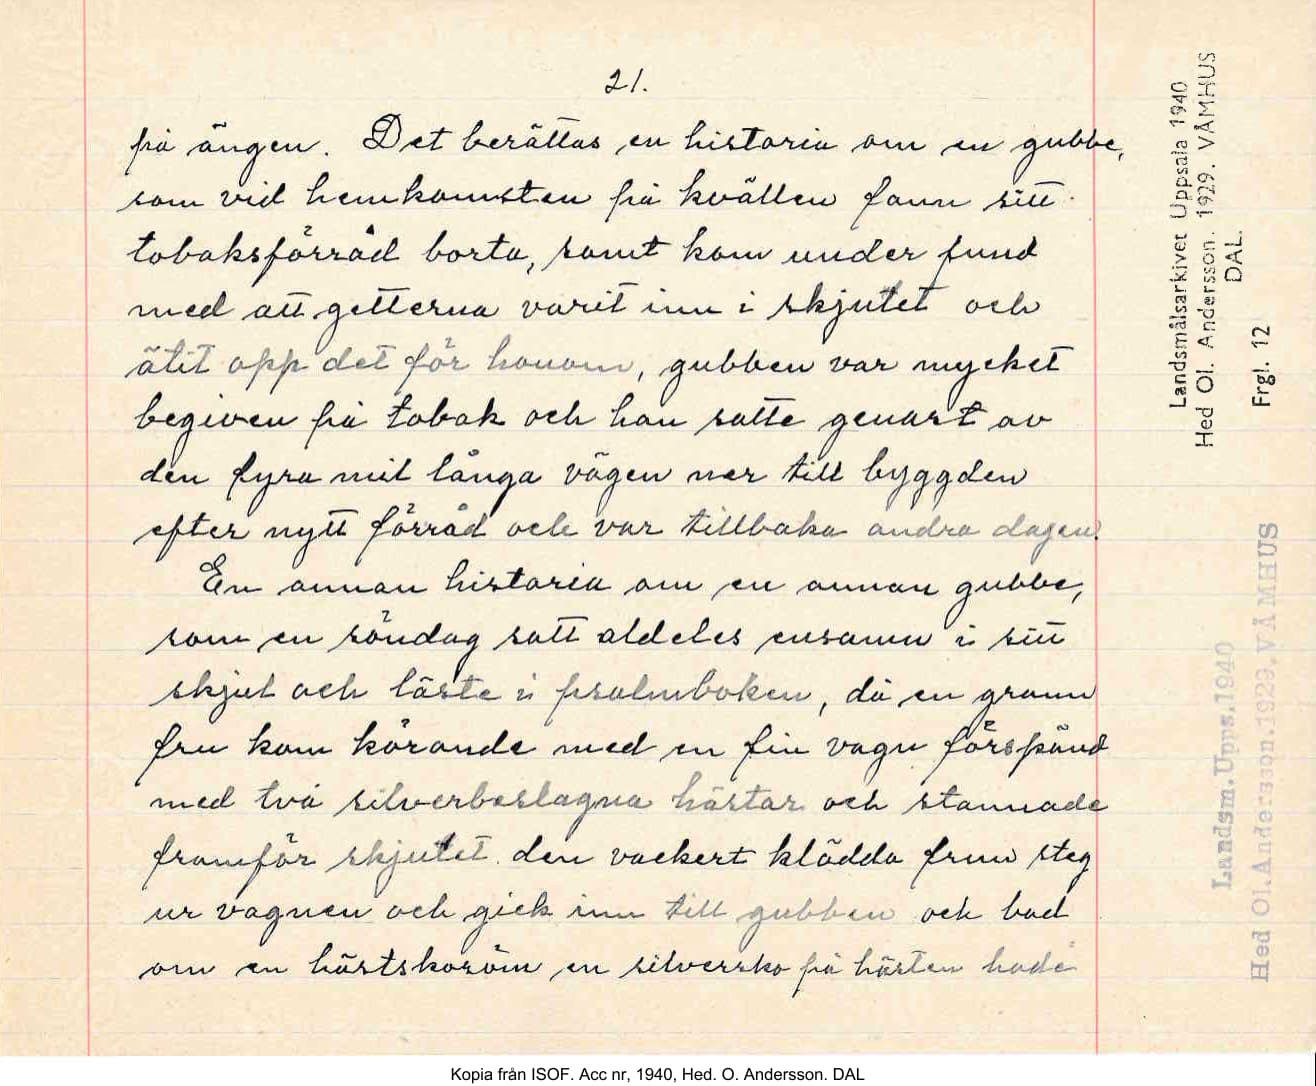 21.
på ängen. Det berättas en historia om en gubbe,
som vid hemkomsten på kvällen fann sitt
tobaksförråd borta, samt kom under fund
med att getterna varit inn i skjutet och
ätit opp det för honom, gubben var mycket
begiven på tobak och han satte genast av
den fyra mil långa vägen ner till byggden
efter nytt förråd och var tillbaka andra dagen.
En annan historia om en annan gubbe,
som en söndag satt aldeles ensamn i sitt
skjul och läste i psalmboken, då en grann
fru kom körande med en fin vagn förspänd
med två silverbeslagna hästar och stannade
framför skjutet. den vackert klädda frun steg
ur vagnen och gick inn till gubben och bad
om en hästskosöm en silversko på hästen hade
Landsmålsarkivet Uppsala 1940
Hed Ol. Andersson. 1929. VÅMHUS
DAL.
Frgl. 12
Landsm. Upps. 1940
Hed Ol. Andersson. 1929. VÅMHUS
Kopia från ISOF. Acc nr, 1940, Hed. O. Andersson. DAL